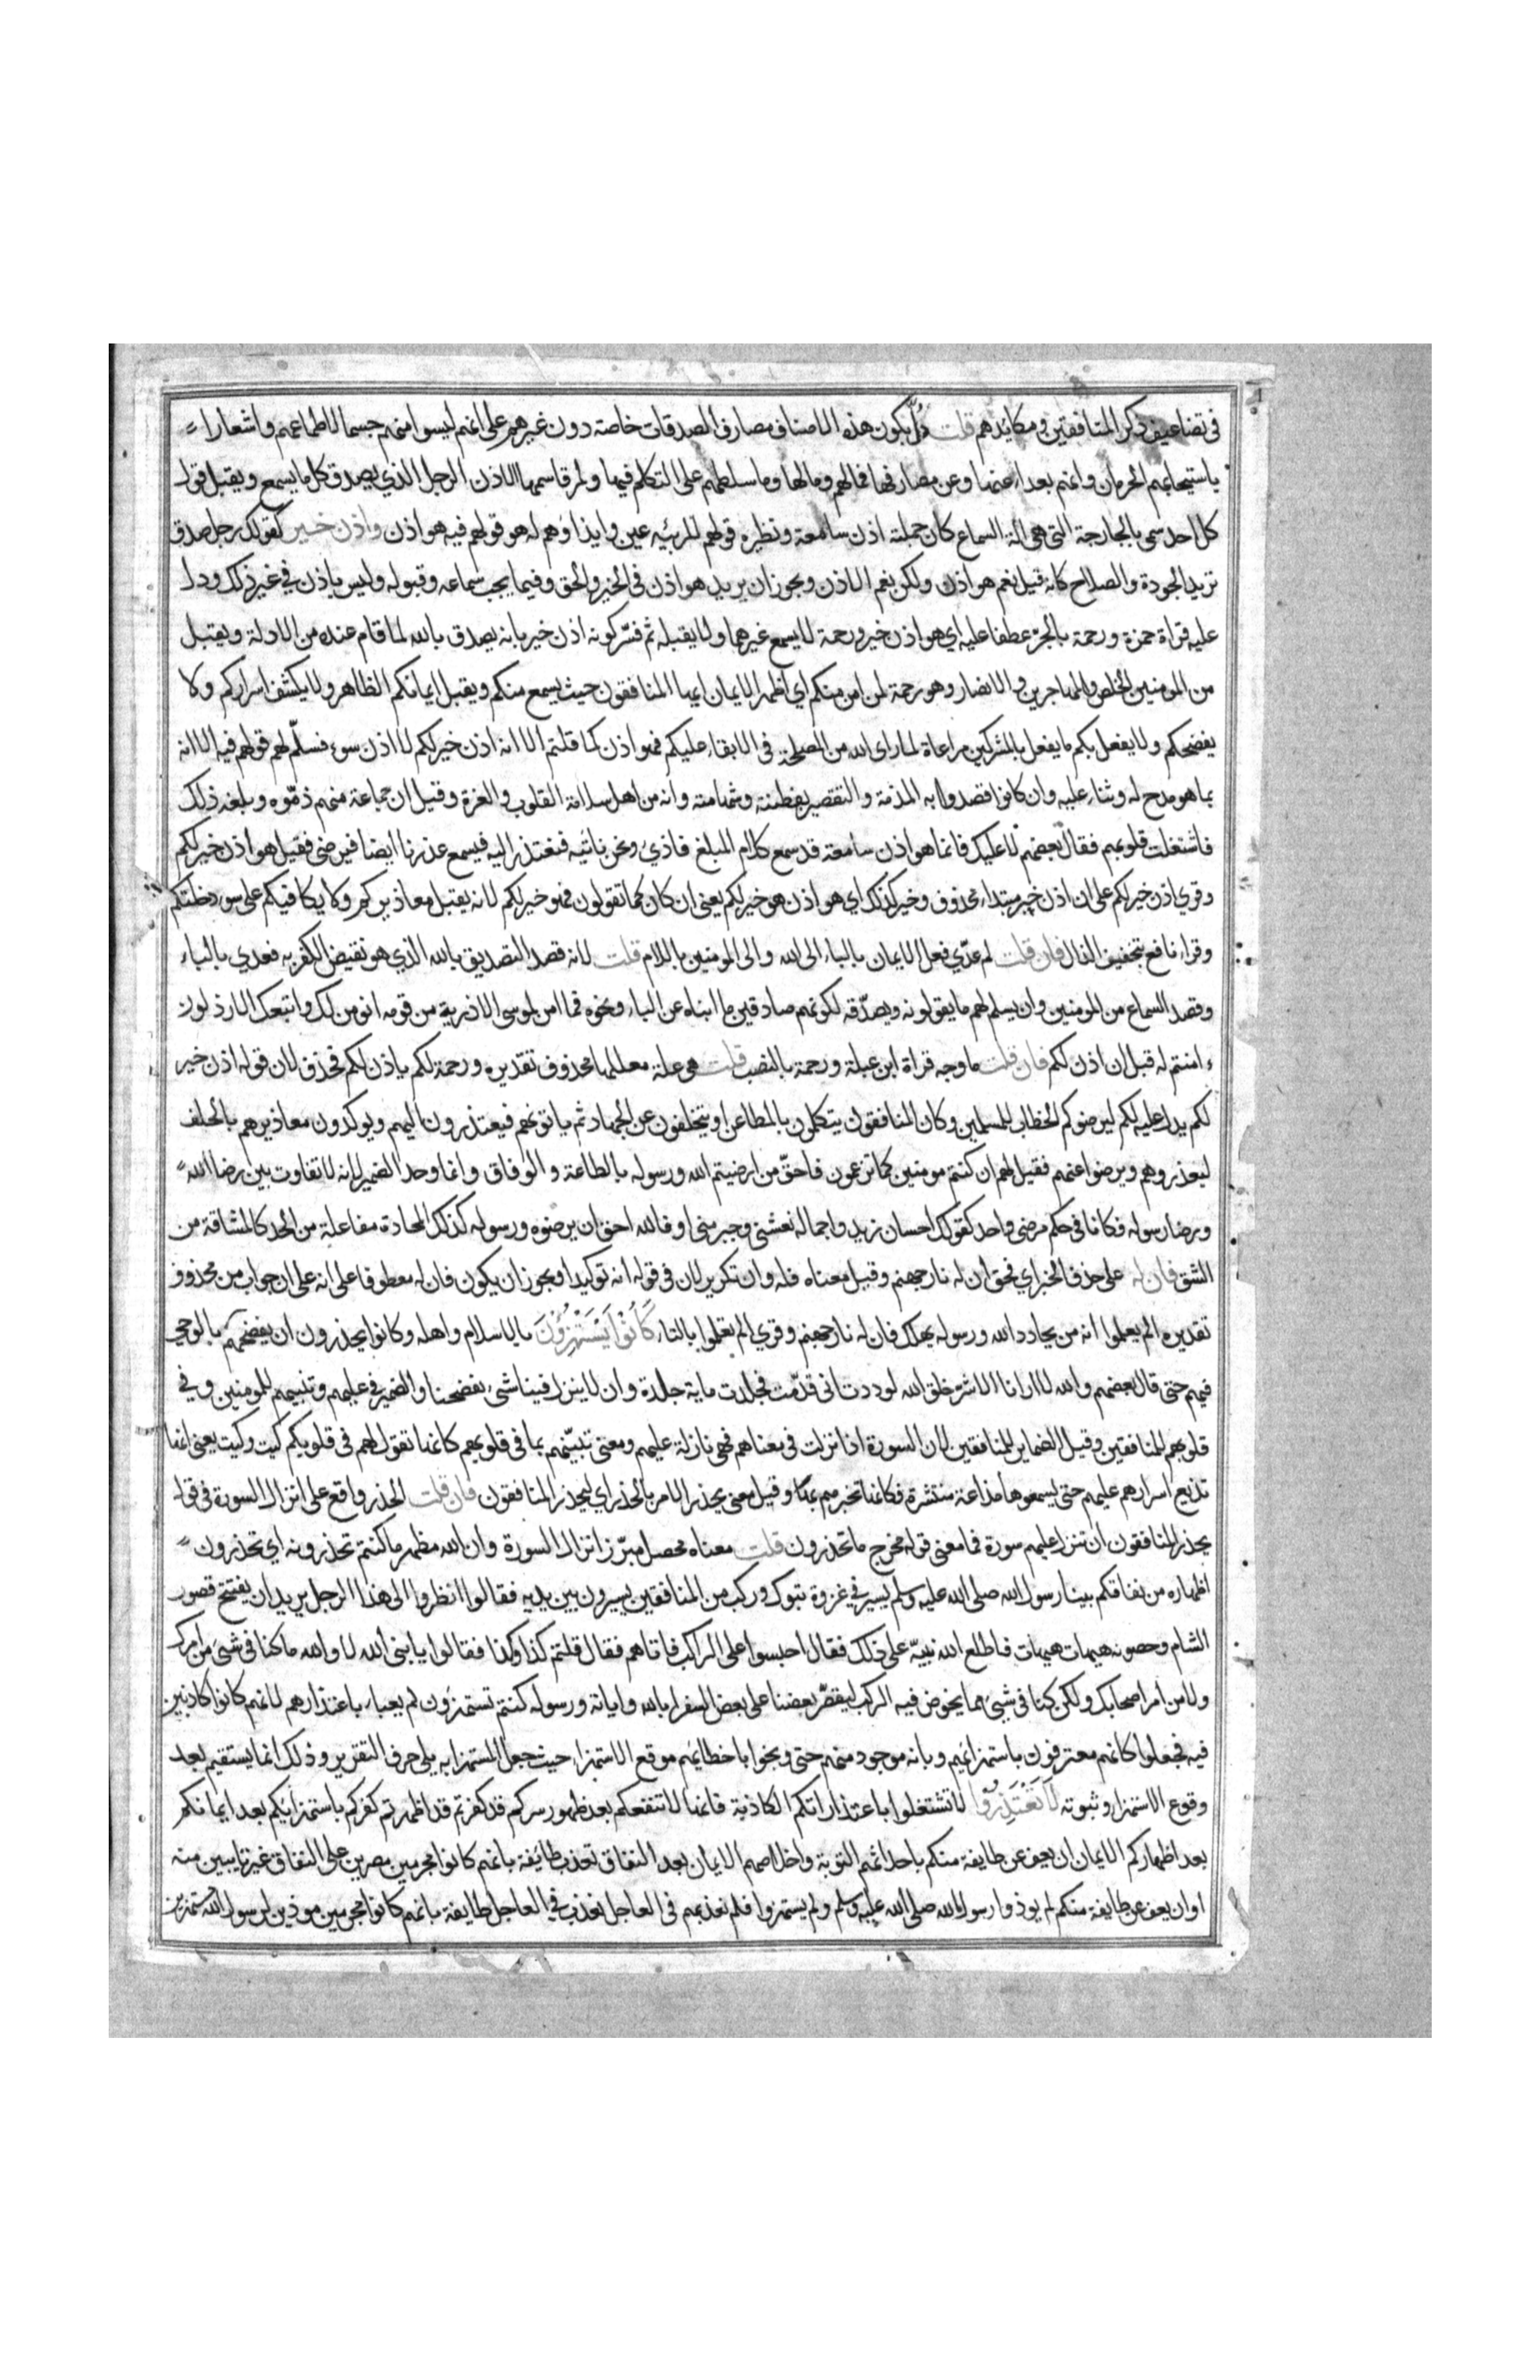 في تضاعيف ذكر المنافقين ومكايدهم قلت دل بكون هذه الاصناف مصارف الصدقات خاصة دون غيرهم على انهم ليسوا منهم حسما لاطماعهم واشعارا
باستيجابهم الحرمان وانهم بعداء عنها وعن مصارفها فمالهم ومالها وما سلطهم على التكلم فيها ولمز قاسمها الاذن الرجل الذي يصدق كل ما يسمع ويقبل قول
كل احد سمي بالجارحة التي هي الة السماع كان جملته اذن سامعة ونظيره قولهم للربيئة عين وايذاوهم له هو قولهم فيه هو اذن واذن خير كقولك رجل صدق
تريد الجودة والصلاح كانه قيل نعم هو اذن ولكن نعم الاذن ويجوز ان يريد هو اذن في الخير والحق وفيما يجب سماعه وقبوله وليس باذن في غير ذلك ودل
عليه قراة حمزة ورحمة بالجر عطفا عليه اي هو اذن خير ورحمة لا يسمع غيرهما ولا يقبله ثم فسّر كونه اذن خير بانه يصدق بالله لما قام عنده من الادلة ويقبل
من المومنين الخلص والمهاجرين والانصار وهو رحمة لمن امن منكم اي اظهر الايمان ايها المنافقون حيث يسمع منكم ويقبل ايمانكم الظاهر ولا يكشف اسراركم ولا
يفضحكم ولا يفعل بكم ما يفعل بالمشركين مراعاة لما راى الله من المصلحة في الابقاء عليكم فهو اذن كما قلتم الا انه اذن خير لكم لا اذن سوء فسلّم لهم قولهم فيه الا انه
بما هو مدح له وثناء عليه وان كانوا قصدوا به المذمة والتقصير بفطنته وشهامته وانه من اهل سلامة القلوب والغرة وقيل ان جماعة منهم ذمّوه وبلغه ذلك
فاشتغلت قلوبهم فقال بعضهم لا عليك فانما هو اذن سامعة قد سمع كلام المبلغ فاذي ونحن ناتيه فنعتذر اليه فيسمع عذرنا ايضا فيرضى فقيل هو اذن خير لكم
وقري اذن خير لكم على ان اذن خبر مبتداء محذوف وخير كذلك اي هو اذن هو خير لكم يعني ان كان كما تقولون فهو خير لكم لانه يقبل معاذيركم ولا يكافيكم على سوء دخلتكم
وقراء نافع بتخفيف الذال فان قلت لم عدّي فعل الايمان بالباء الى الله والى المومنين باللام قلت لانه قصد التصديق بالله الذي هو نقيض الكفر به فعدي بالباء
وقصد السماع من المومنين وان يسلم لهم ما يقولونه ويصدّقه لكونهم صادقين ما انباه عن الباء ونحوه فما امن لموسى الا ذرية من قومه انومن لك واتبعك الارذلون
ءامنتم له قبل ان اذن لكم فان قلت ما وجه قراة ابن عبلة ورحمة بالنصب قلت هي علة معللها محذوف تقديره ورحمة لكم ياذن لكم فحذف لان قوله اذن خير
لكم يدل عليه لكم ليرضوكم الخطاب للمسلمين وكان المنافقون يتكلمون بالمطاعن او يتخلفون عن الجهاد ثم ياتونهم فيعتذرون اليهم ويوكدون معاذيرهم بالحلف
ليعذروهم ويرضوا عنهم فقيل لهم ان كنتم مومنين كما تزعمون فاحقّ من ارضيتم الله ورسوله بالطاعة والوفاق وانما وحد الضمير لانه لا تفاوت بين رضا الله
ورضا رسوله فكانا في حكم مرضي واحد كقولك احسان زيد واجماله نعشني وجبر مني او فالله احق ان يرضوه ورسوله كذلك المحادة مفاعلة من الحد كالمشاقة من
الشق فان له على حذف الخبر اي فحق ان له نار جهنم وقيل معناه فله وان تكرير لان في قوله انه توكيدا ويجوز ان يكون فان له معطوفا على انه على ان جواب من محذوف
تقديره الم يعلموا انه من يحادد الله ورسوله يهلك فان له نار جهنم وقري الم تعلموا بالتاء كَانُوْا يَسْتَهْزِؤُنَ بالاسلام واهله وكانوا يحذرون ان يفضحهم بالوحي
فيهم حتى قال بعضهم والله لا ارانا الا شرّ خلق الله لوددت اني قدّمت فجلدت ماية جلدة وان لا ينزل فينا شيء يفضحنا والضمير في عليهم وتنبيهم للمومنين وفي
قلوبهم للمنافقين وقيل الضماير للمنافقين لان السورة اذا نزلت في معناهم فهي نازلة عليهم ومعنى تنبيّهم بما في قلوبهم كانما تقول لهم في قلوبكم كيت وكيت يعني انها
تذيع اسرارهم عليهم حتى يسمعوها مذاعة منتشرة فكانما تخبرهم بها وقيل معنى يحذر الامر بالحذر اي ليحذر المنافقون فان قلت الحذر واقع على انزال السورة في قوله
يحذر المنافقون ان تنزل عليهم سورة فما معنى قوله مخرج ما تحذرون قلت معناه محصل مبرّز انزال السورة وان الله مظهر ما كنتم تحذرونه اي تحذرون
اظهاره من نفاقكم بينا رسول الله صلى الله عليه وسلم يسير في غزوة تبوك وركب من المنافقين يسيرون بين يديه فقالوا انظروا الى هذا الرجل يريد ان يفتتح قصور
الشام وحصونه هيهات هيهات فاطلع الله نبيّه على ذلك فقال احبسوا على الراكب فاتاهم فقال قلتم كذا وكذا فقالوا يا نبي الله لا والله ما كنا في شيء من امرك
ولا من امر اصحابك ولكن كنا في شيء مما يخوض فيه الركب ليقصّر بعضنا على بعض السفر ابالله واياته ورسوله كنتم تستهزون لم يعباء باعتذارهم لانهم كانوا كاذبين
فيه فجعلوا كانهم معترفون باستهزائهم وبانه موجود منهم حتى وبخوا باخطائهم موقع الاستهزاء حيث جعل المستهزا به يلي حرف التقرير وذلك انما يستقيم بعد
وقوع الاستهزاء وثبوته لَا تَعْتَذِرُوْا لا تشتغلوا باعتذاراتكم الكاذبة فانها لا تنفعكم بعد ظهور سركم قد كفرتم قد اظهرتم كفركم باستهزائكم بعد ايمانكم
بعد اظهاركم الايمان ان يعف عن طايفة منكم باحداثهم التوبة واخلاصهم الايمان بعد النفاق تعذب طائفة بانهم كانوا مجرمين مصرين على النفاق غير تايبين منه
او ان يعف عن طايفة منكم لم يوذوا رسول الله صلى الله عليه وسلم ولم يستهزوا فلم نعذبهم في العاجل نعذب في العاجل طايفة بانهم كانوا مجرمين موذين لرسول الله مستهزين